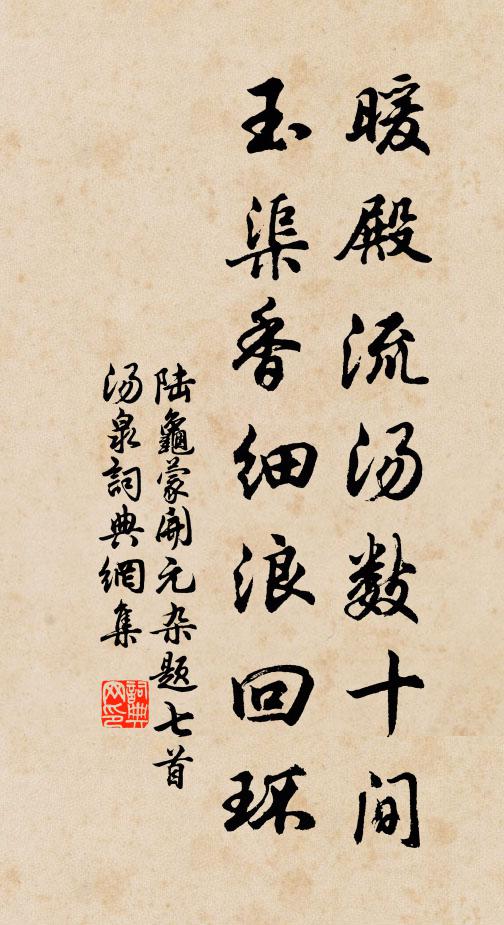 暖殿流汤数十间
玉渠香细浪回环
陆龜蒙開元杂题七首
汤泉詞典網集
詞典网印